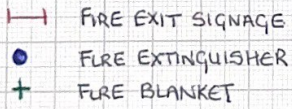 FIRE EXIT SIGNAGE
FIRE EXTINGUISHER
FIRE BLANKET